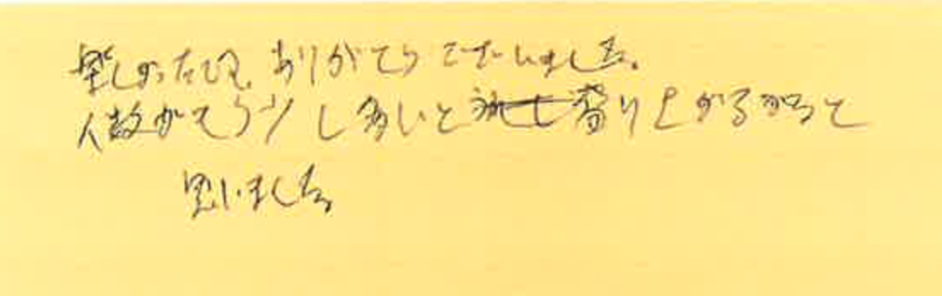 楽しかったです。ありがとうございました。
人数がもう少し多いと盛り上がるかなと
思いました。